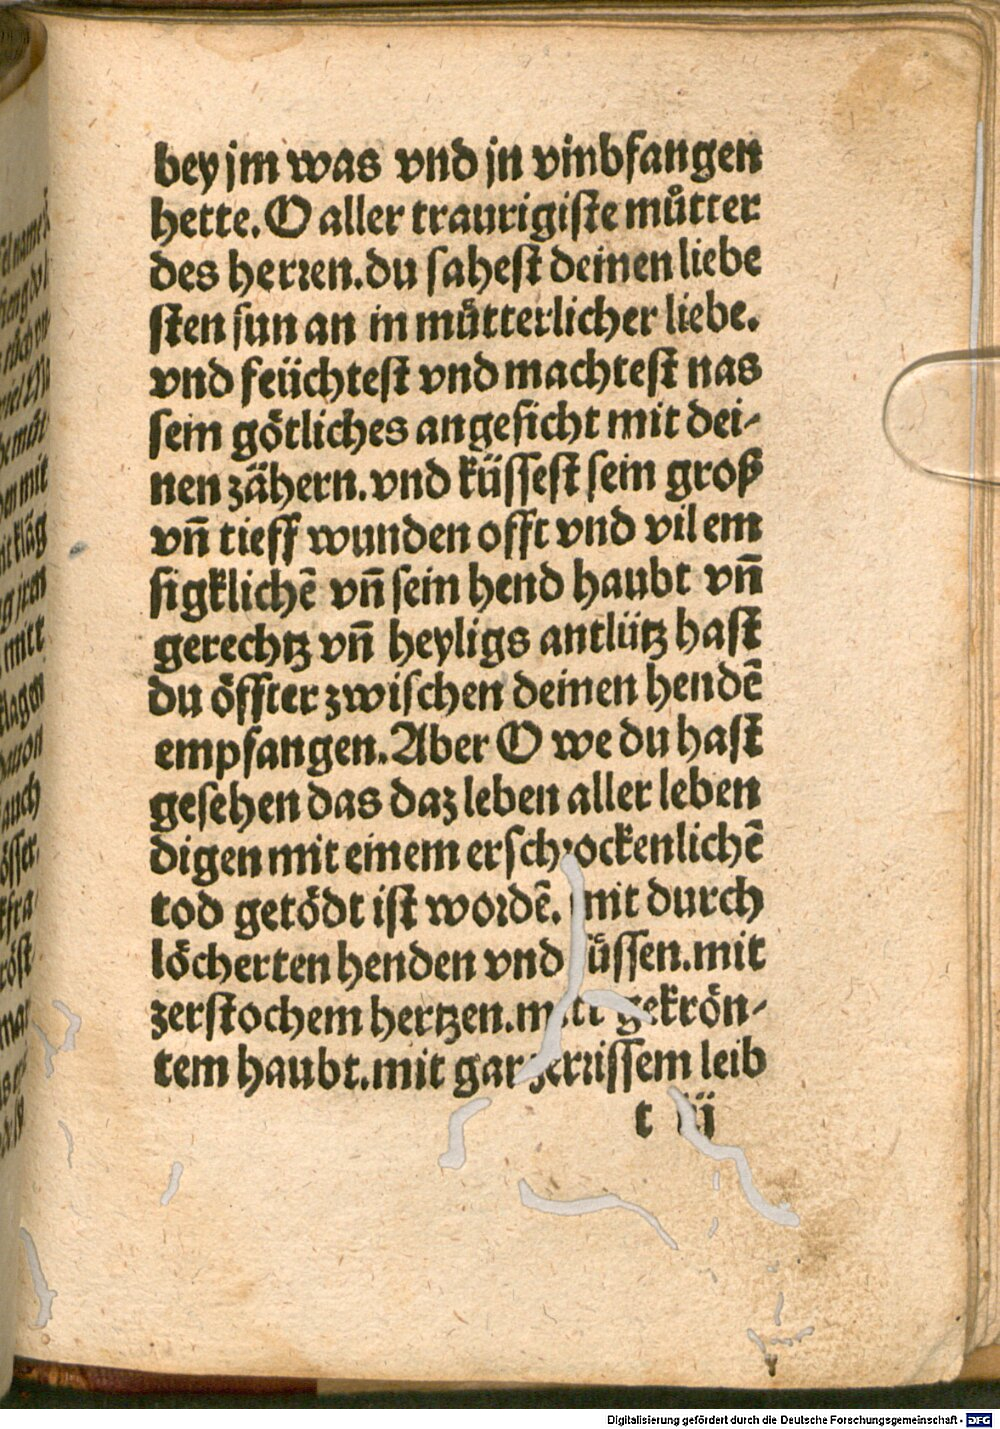 bey jm was vnd jn vmbfangen
hette. O aller traurigiste můtter
des herren. du sahest deinen liebe
sten sun an in můtterlicher liebe.
vnd feüchtest vnd machtest nas
sein götliches angesicht mit dei-
nen zähern. vnd küssest sein groß
vn̄ tieff wunden offt vnd vil em
sigklichē vn̄ sein hend haubt vn̄
gerechtz vn̄ heyligs antlütz hast
du öffter zwischen deinen hendē
empfangen. Aber O we du hast
gesehen das daz leben aller leben
digen mit einem erschrockenlichē
tod getödt ist wordē. mit durch
löcherten henden vnd füssen. mit
zerstochem hertzen. mitt gekrön-
tem haubt. mit gar zerrissem leib
t iij
Digitalisierung gefördert durch die Deutsche Forschungsgemeinschaft - DFG